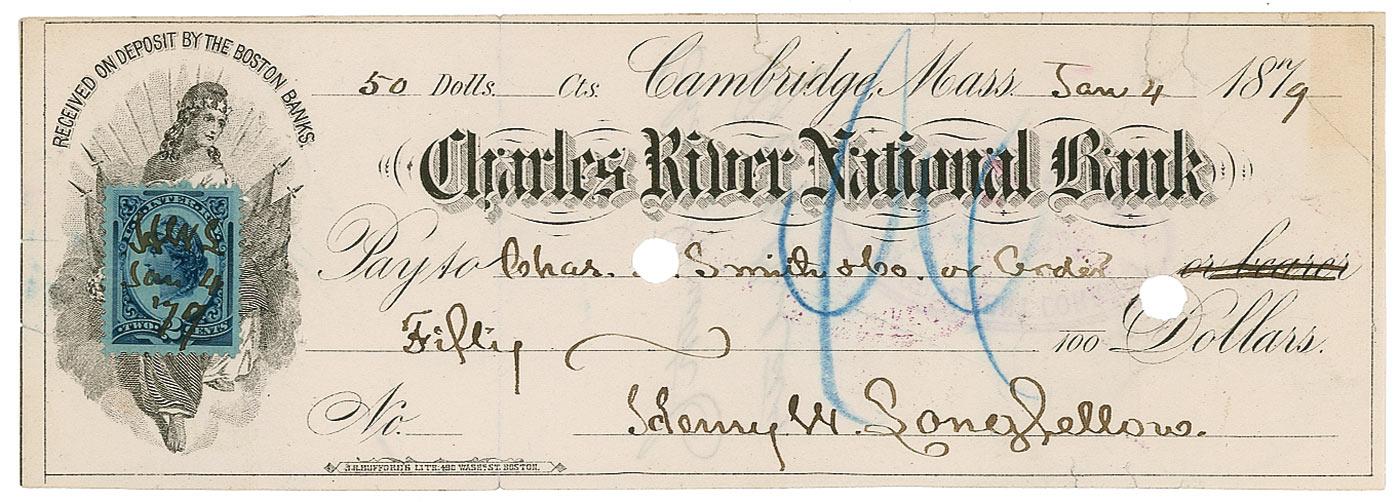 RECEIVED ON DEPOSIT BY THE BOSTON BANKS.
50 Dolls. Cts. Cambridge, Mass. Jan 4 1879
Charles River National Bank
Pay to Chas. Smith & Co. or Order or bearer
Fifty 100 Dollars.
No. Henry W. Longfellow.
U.S. INTER. REV.
H.W.L.
Jan 4
79
TWO 2 CENTS
J.H. BUFFORD'S LITH. 490 WASHT ST. BOSTON.